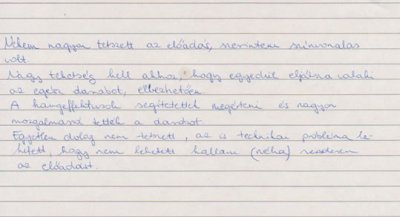 Nekem nagyon tetszett az előadás, szerintem színvonalas
volt.
Nagy tehetség kell ahhoz, hogy egyedül eljátsza valaki
az egész darabot, élvezhetően.
A hangeffektusok segítettek megérteni és nagyon
mozgalmassá tették a darabot.
Egyetlen dolog nem tetszett, az a technikai probléma le-
hetett, hogy nem lehetett hallani (néha) rendesen
az előadást.